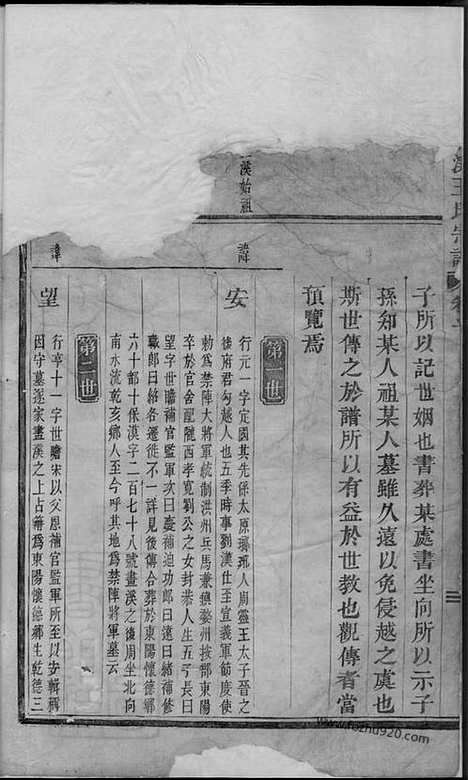 溪王氏宗譜
卷一
子所以記世姻也書葬某處書坐向所以示子
孫知某人祖某人墓雖久遠以免侵越之虞也
斯世傳之於譜所以有益於世教也觀傳者當
預覽焉
溪始祖
第一世
諱
安
行元一字定國其先係太原瑯琊人周靈王太子晉之
後府君勾越人也五季時事劉漢仕至宣義軍節度使
勅為禁陣大將軍統制洪州兵馬兼鎮婺州按郡東陽
卒於官舍配隴西李寬劉公之女封恭人生五丂長曰
望字世瞻補官監軍次曰慶補迪功郎曰遠曰緒補修
職郎曰綹各遷徙不一詳見後傳合葬於東陽懷德鄉
六十部十保漢字二百七十八號畫溪之後周坐北向
南水流乾亥鄉人至今呼其地為禁陣將軍墓云
第二世
諱
望
行亨十一字世瞻宋以父恩補官監軍所至以安輯稱
因守墓遂家畫溪之上占籍為東陽懷德鄉生乾德三
www.fozhu920.com